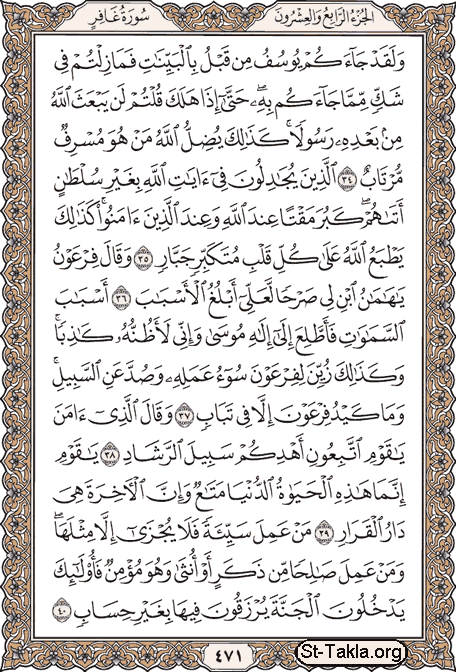 سُورَةُ غَافِرٍ
الجُزْءُ الرَّابِعُ وَالعِشْرُونَ
وَلَقَدْ جَآءَكُمْ يُوسُفُ مِن قَبْلُ بِٱلْبَيِّنَٰتِ فَمَا زِلْتُمْ فِى
شَكٍّ مِّمَّا جَآءَكُم بِهِۦ ۖ حَتَّىٰٓ إِذَا هَلَكَ قُلْتُمْ لَن يَبْعَثَ ٱللَّهُ
مِنۢ بَعْدِهِۦ رَسُولًا ۚ كَذَٰلِكَ يُضِلُّ ٱللَّهُ مَنْ هُوَ مُسْرِفٌ
مُّرْتَابٌ ٣٤ ٱلَّذِينَ يُجَٰدِلُونَ فِىٓ ءَايَٰتِ ٱللَّهِ بِغَيْرِ سُلْطَٰنٍ
أَتَىٰهُمْ ۖ كَبُرَ مَقْتًا عِندَ ٱللَّهِ وَعِندَ ٱلَّذِينَ ءَامَنُوا۟ ۚ كَذَٰلِكَ
يَطْبَعُ ٱللَّهُ عَلَىٰ كُلِّ قَلْبِ مُتَكَبِّرٍ جَبَّارٍ ٣٥ وَقَالَ فِرْعَوْنُ
يَٰهَٰمَٰنُ ٱبْنِ لِى صَرْحًا لَّعَلِّىٓ أَبْلُغُ ٱلْأَسْبَٰبَ ٣٦ أَسْبَٰبَ
ٱلسَّمَٰوَٰتِ فَأَطَّلِعَ إِلَىٰٓ إِلَٰهِ مُوسَىٰ وَإِنِّى لَأَظُنُّهُۥ كَٰذِبًا ۚ
وَكَذَٰلِكَ زُيِّنَ لِفِرْعَوْنَ سُوٓءُ عَمَلِهِۦ وَصُدَّ عَنِ ٱلسَّبِيلِ ۚ
وَمَا كَيْدُ فِرْعَوْنَ إِلَّا فِى تَبَابٍ ٣٧ وَقَالَ ٱلَّذِىٓ ءَامَنَ
يَٰقَوْمِ ٱتَّبِعُونِ أَهْدِكُمْ سَبِيلَ ٱلرَّشَادِ ٣٨ يَٰقَوْمِ
إِنَّمَا هَٰذِهِ ٱلْحَيَوٰةُ ٱلدُّنْيَا مَتَٰعٌ وَإِنَّ ٱلْءَاخِرَةَ هِىَ
دَارُ ٱلْقَرَارِ ٣٩ مَنْ عَمِلَ سَيِّئَةً فَلَا يُجْزَىٰٓ إِلَّا مِثْلَهَا ۖ
وَمَنْ عَمِلَ صَٰلِحًا مِّن ذَكَرٍ أَوْ أُنثَىٰ وَهُوَ مُؤْمِنٌ فَأُو۟لَٰٓئِكَ
يَدْخُلُونَ ٱلْجَنَّةَ يُرْزَقُونَ فِيهَا بِغَيْرِ حِسَابٍ ٤٠
٤٧١
St-Takla.org